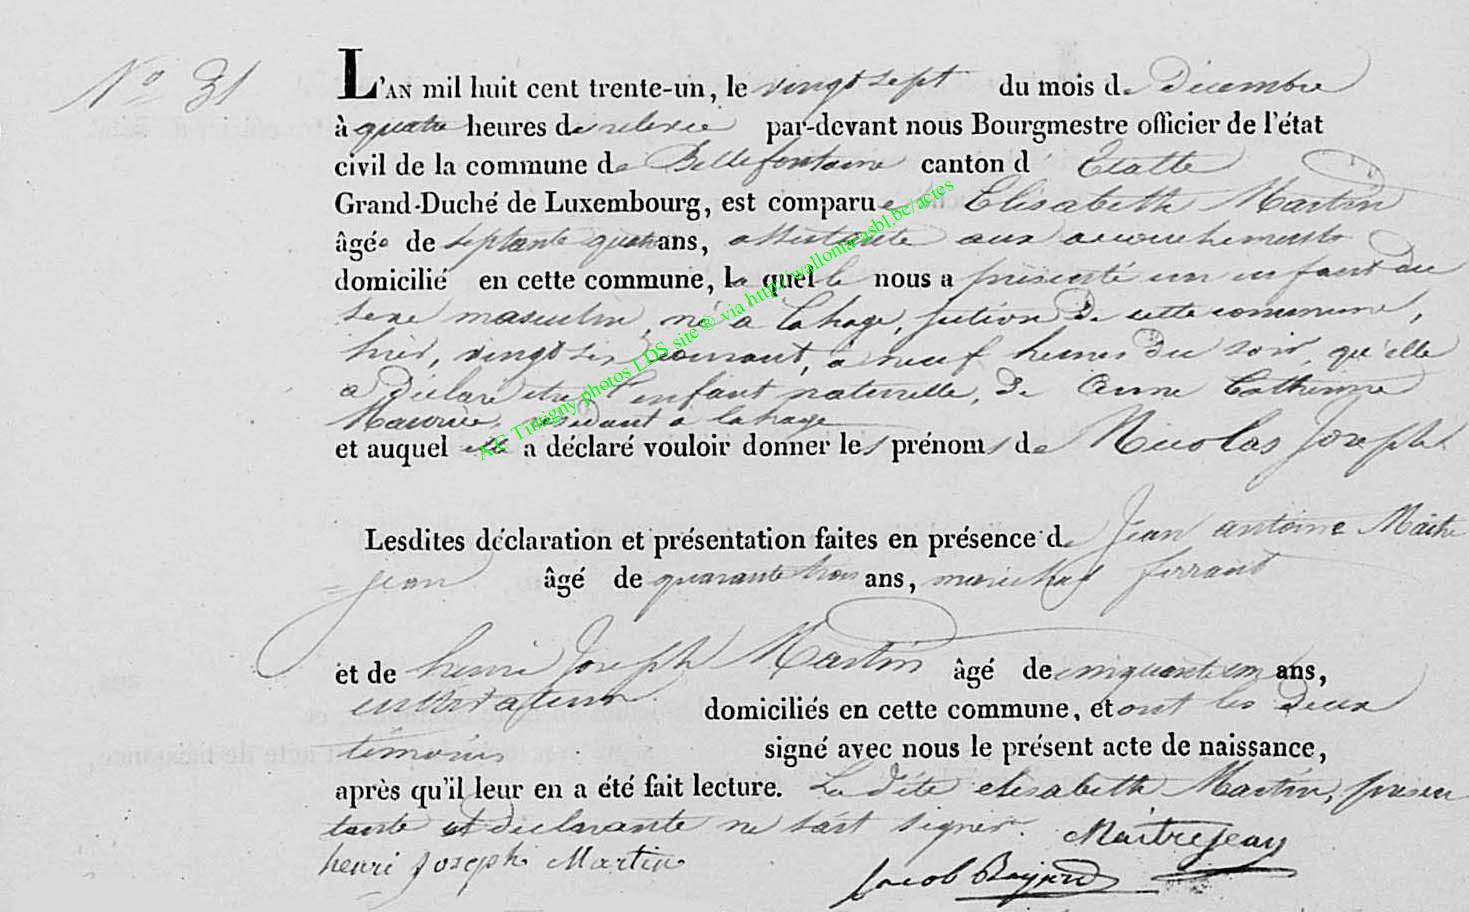 No 31
L'AN mil huit cent trente-un, le vingt sept du mois de Décembre
à quatre heures de relevée par-devant nous Bourgmestre officier de l'état
civil de la commune de Bellefontaine canton d' Etalle
Grand-Duché de Luxembourg, est comparue Elisabeth Martin
âgée de septante quatre ans, assistante aux accouchements
domicilié en cette commune, la quelle nous a présenté un enfant du
sexe masculin, né a Lahage, section de cette commune,
hier, vingt six courant, a neuf heures du soir, qu'elle
a déclaré etre l'enfant naturelle, de Anne Catherine
Maurice, résidant a lahage
et auquel elle a déclaré vouloir donner les prénoms de Nicolas Joseph
Lesdites déclaration et présentation faites en présence de Jean antoine Maitre
=jean âgé de quarante trois ans, maréchal ferrant
et de henri Joseph Martin âgé de cinquante un ans,
cultivateur domiciliés en cette commune, et ont les deux
témoins signé avec nous le présent acte de naissance,
après qu'il leur en a été fait lecture. La dite elisabeth Martin, présen
tante et déclarante ne sait signer. Maitrejean
henri Joseph Martin
Jacob
AE Tintigny photos LDS site ® via http://wallonia-asbl.be/actes